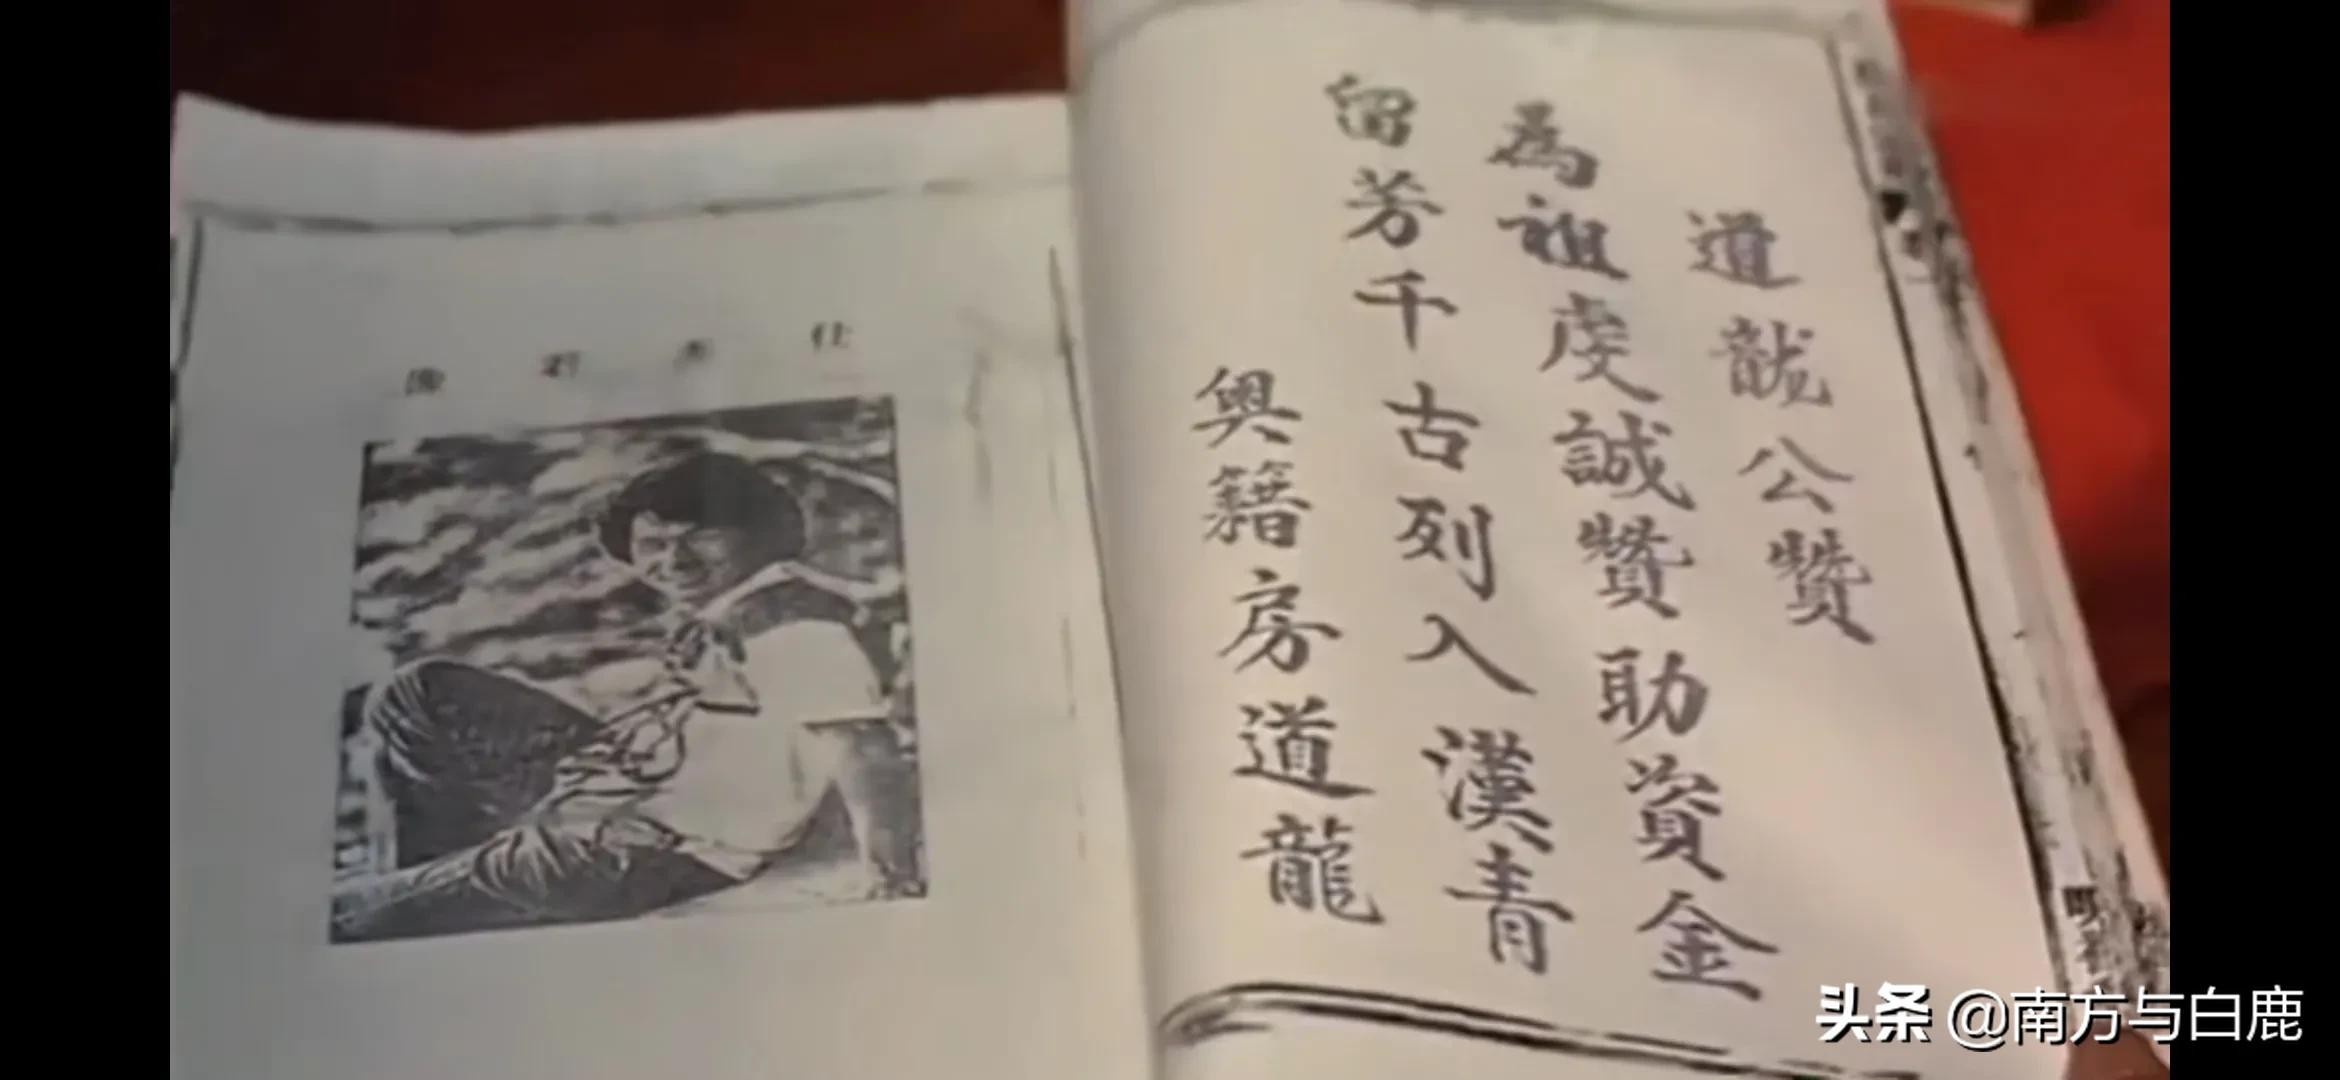 道龍公赞
為祖虔誠贊助資金
留芳千古列入漢青
與籍房道龍
仕杰君像
头条 @南方与白鹿